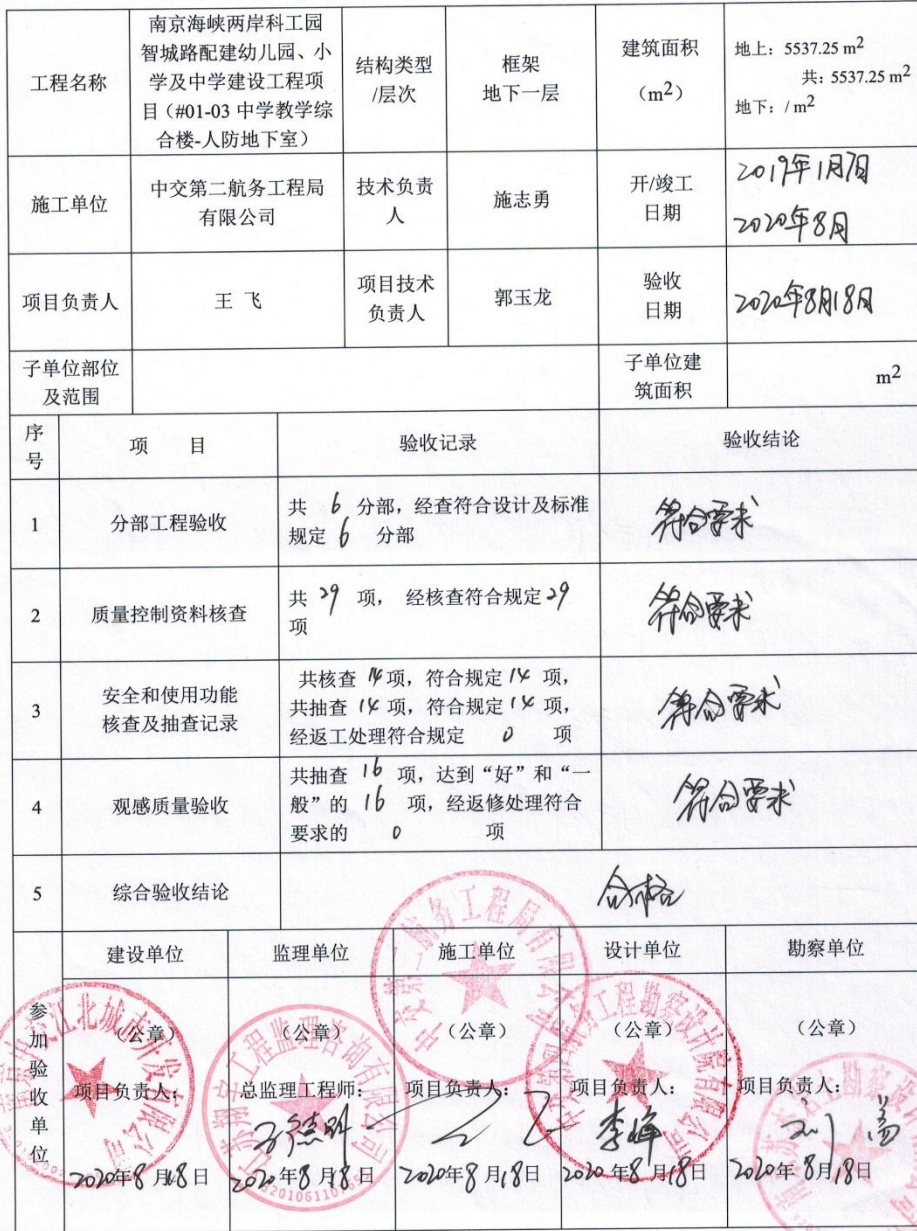 工程名称
南京海峡两岸科工园
智城路配建幼儿园、小
学及中学建设工程项
目（#01-03 中学教学综
合楼-人防地下室）
结构类型
/层次
框架
地下一层
建筑面积
（m²）
地上：5537.25 m²
共：5537.25 m²
地下：/ m²
施工单位
中交第二航务工程局
有限公司
技术负责
人
施志勇
开/竣工
日期
2019年1月
2020年8月
项目负责人
王 飞
项目技术
负责人
郭玉龙
验收
日期
2020年8月18日
子单位部位
及范围
子单位建
筑面积
m²
序
号
项 目
验收记录
验收结论
1
分部工程验收
共 6 分部，经查符合设计及标准
规定 6 分部
符合要求
2
质量控制资料核查
共 29 项， 经核查符合规定 29
项
符合要求
3
安全和使用功能
核查及抽查记录
共核查 14 项，符合规定 14 项，
共抽查 14 项，符合规定 14 项，
经返工处理符合规定 0 项
符合要求
4
观感质量验收
共抽查 16 项，达到“好”和“一
般”的 16 项，经返修处理符合
要求的 0 项
符合要求
5
综合验收结论
合格
参加验收单位
建设单位
监理单位
施工单位
设计单位
勘察单位
（公章）
（公章）
（公章）
（公章）
（公章）
项目负责人：
总监理工程师：
项目负责人：
项目负责人：
项目负责人：
李峰
2020年8月18日
2020年8月18日
2020年8月18日
2020年8月18日
2020年8月18日
中交第二航务工程局有限公司